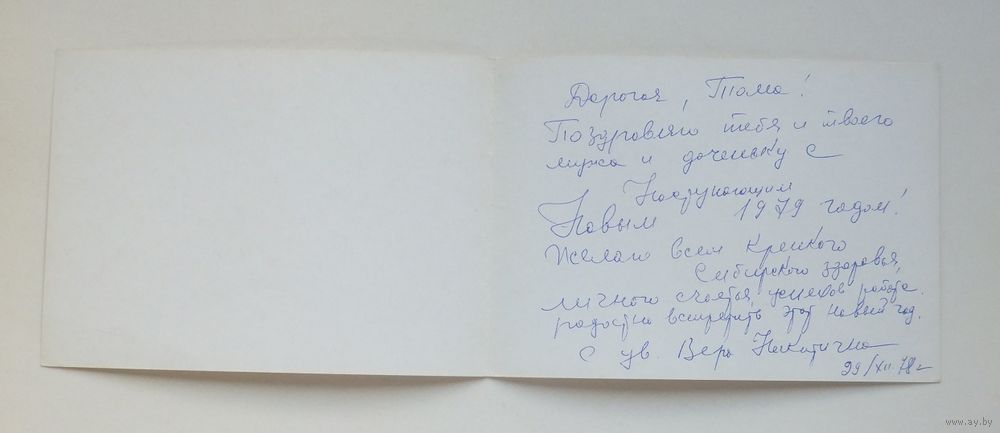 Дорогая, Тома!
Поздровляю тебя и твоего
мужа и доченьку с
Наступающим
Новым 1979 годом!
Желаю всем крепкого
Сибирского здоровья,
личного счастья, успехов работе.
радостно встретить этот новый год.
С ув. Вера Никитична
29/XII 78 г
www.ay.by